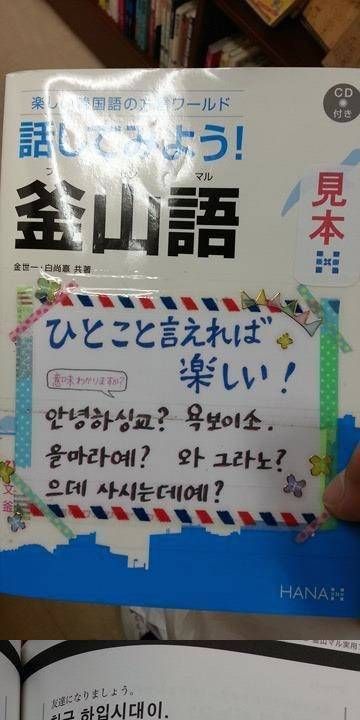 楽しい韓国語の方言ワールド
CD
付き
話してみよう!
プサンマル
釜山語
金世一・白尚憙 共著
見本
ひとこと言えれば
楽しい!
意味わかりますか?
안녕하싱교? 욕보이소.
을마라예? 와 그라노?
으데 사시는데예?
HANA
友達になりましょう。
하입시대이.